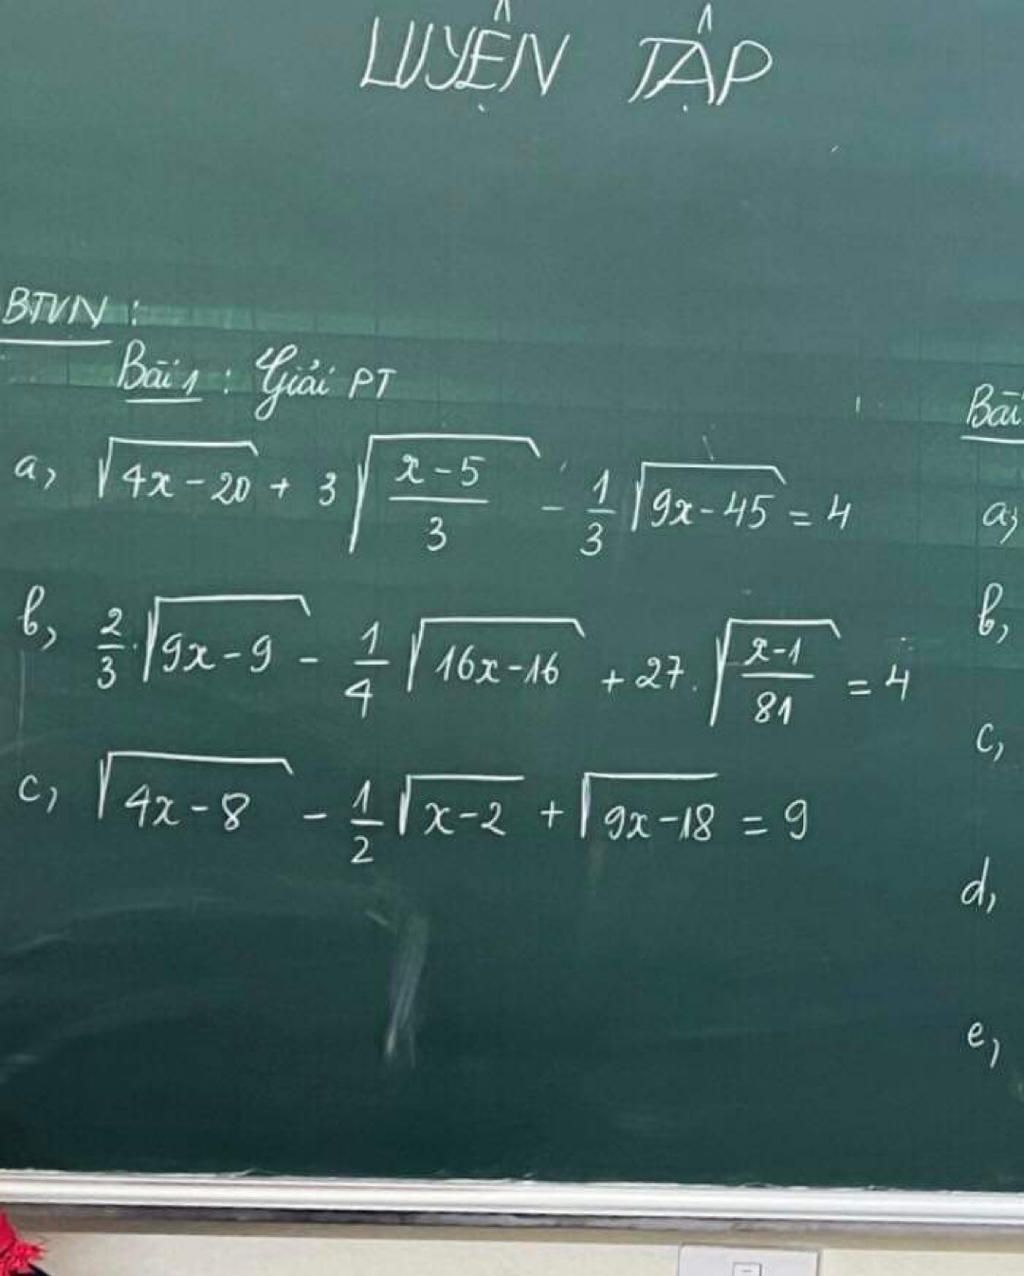 LUYỆN TẬP
BTVN :
Bài 1 : Giải PT
a, √(4x-20) + 3√((x-5)/3) - 1/3 √(9x-45) = 4
b, 2/3.√(9x-9) - 1/4 √(16x-16) + 27.√((x-1)/81) = 4
c, √(4x-8) - 1/2 √(x-2) + √(9x-18) = 9
Bài
a,
b,
c,
d,
e,